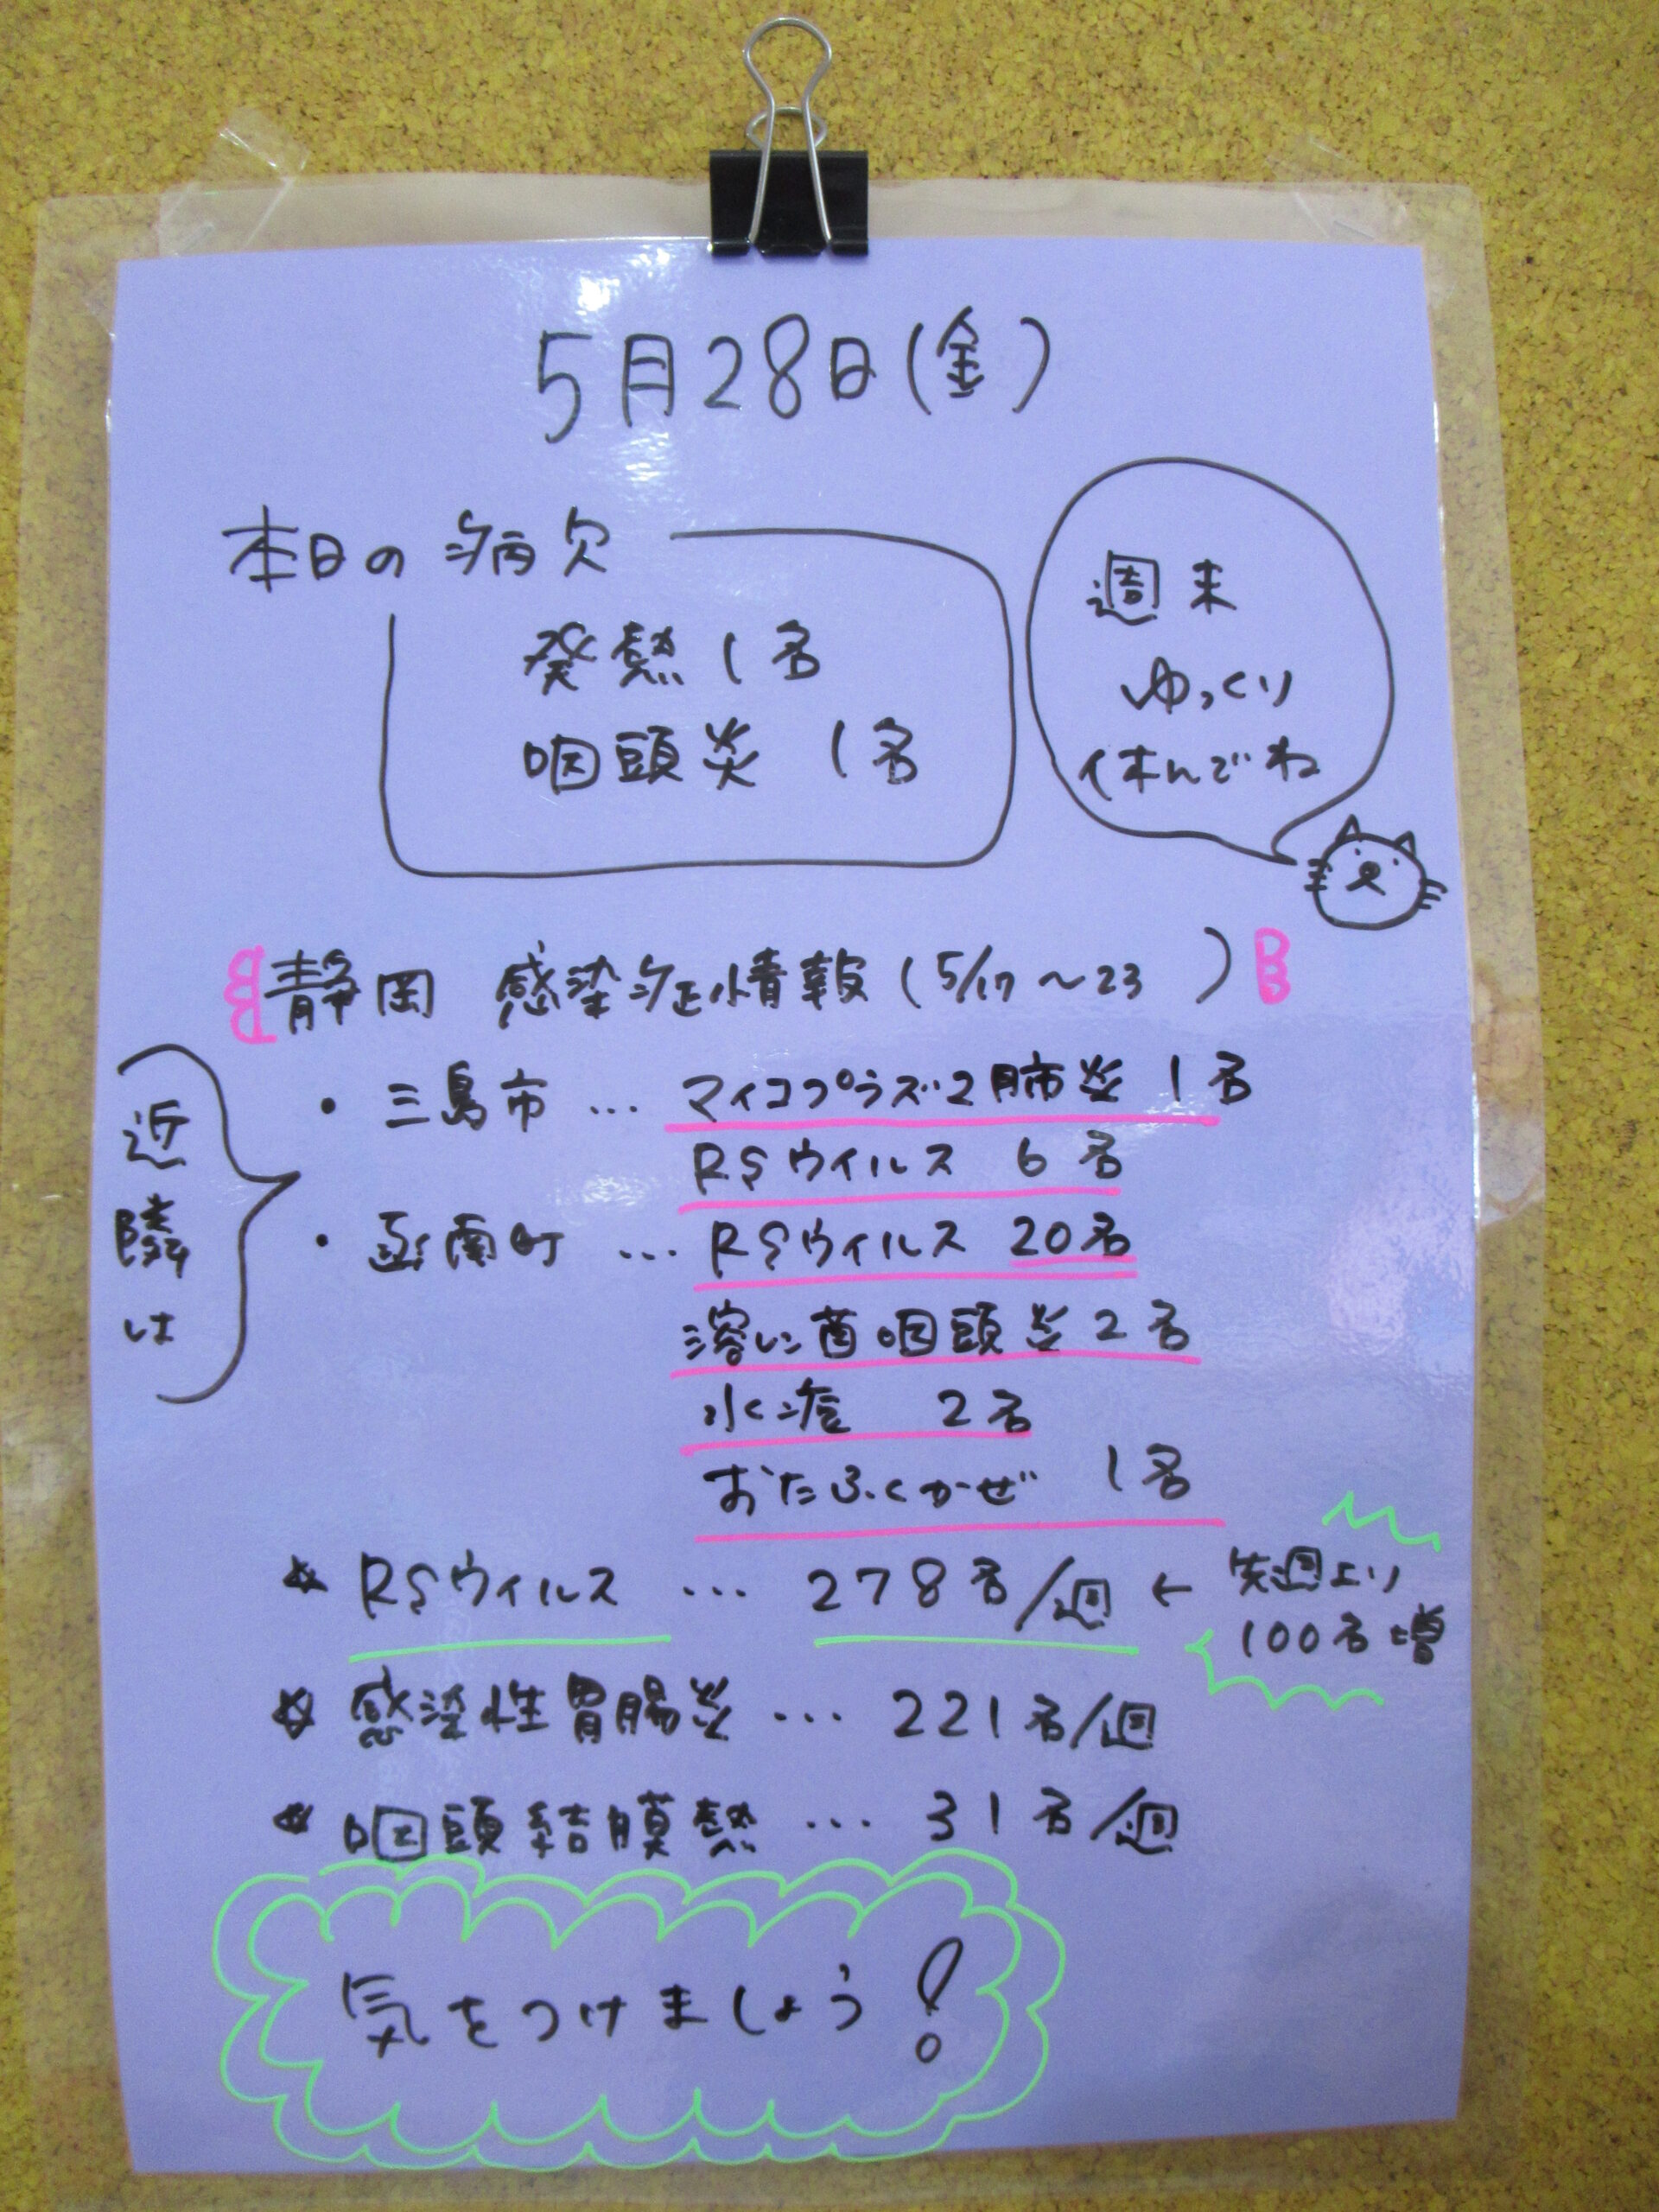 5月28日(金)
本日の病欠
発熱 1名
咽頭炎 1名
週末
ゆっくり
休んでね
静岡 感染症情報(5/17~23 )
近隣は
・三島市 … マイコプラズマ肺炎 1名
RSウイルス 6名
・函南町 … RSウイルス 20名
溶レン菌咽頭炎 2名
水痘 2名
おたふくかぜ 1名
☆ RSウイルス … 278名/週 ← 先週より
100名増
☆ 感染性胃腸炎 … 221名/週
☆ 咽頭結膜熱 … 31名/週
気をつけましょう!